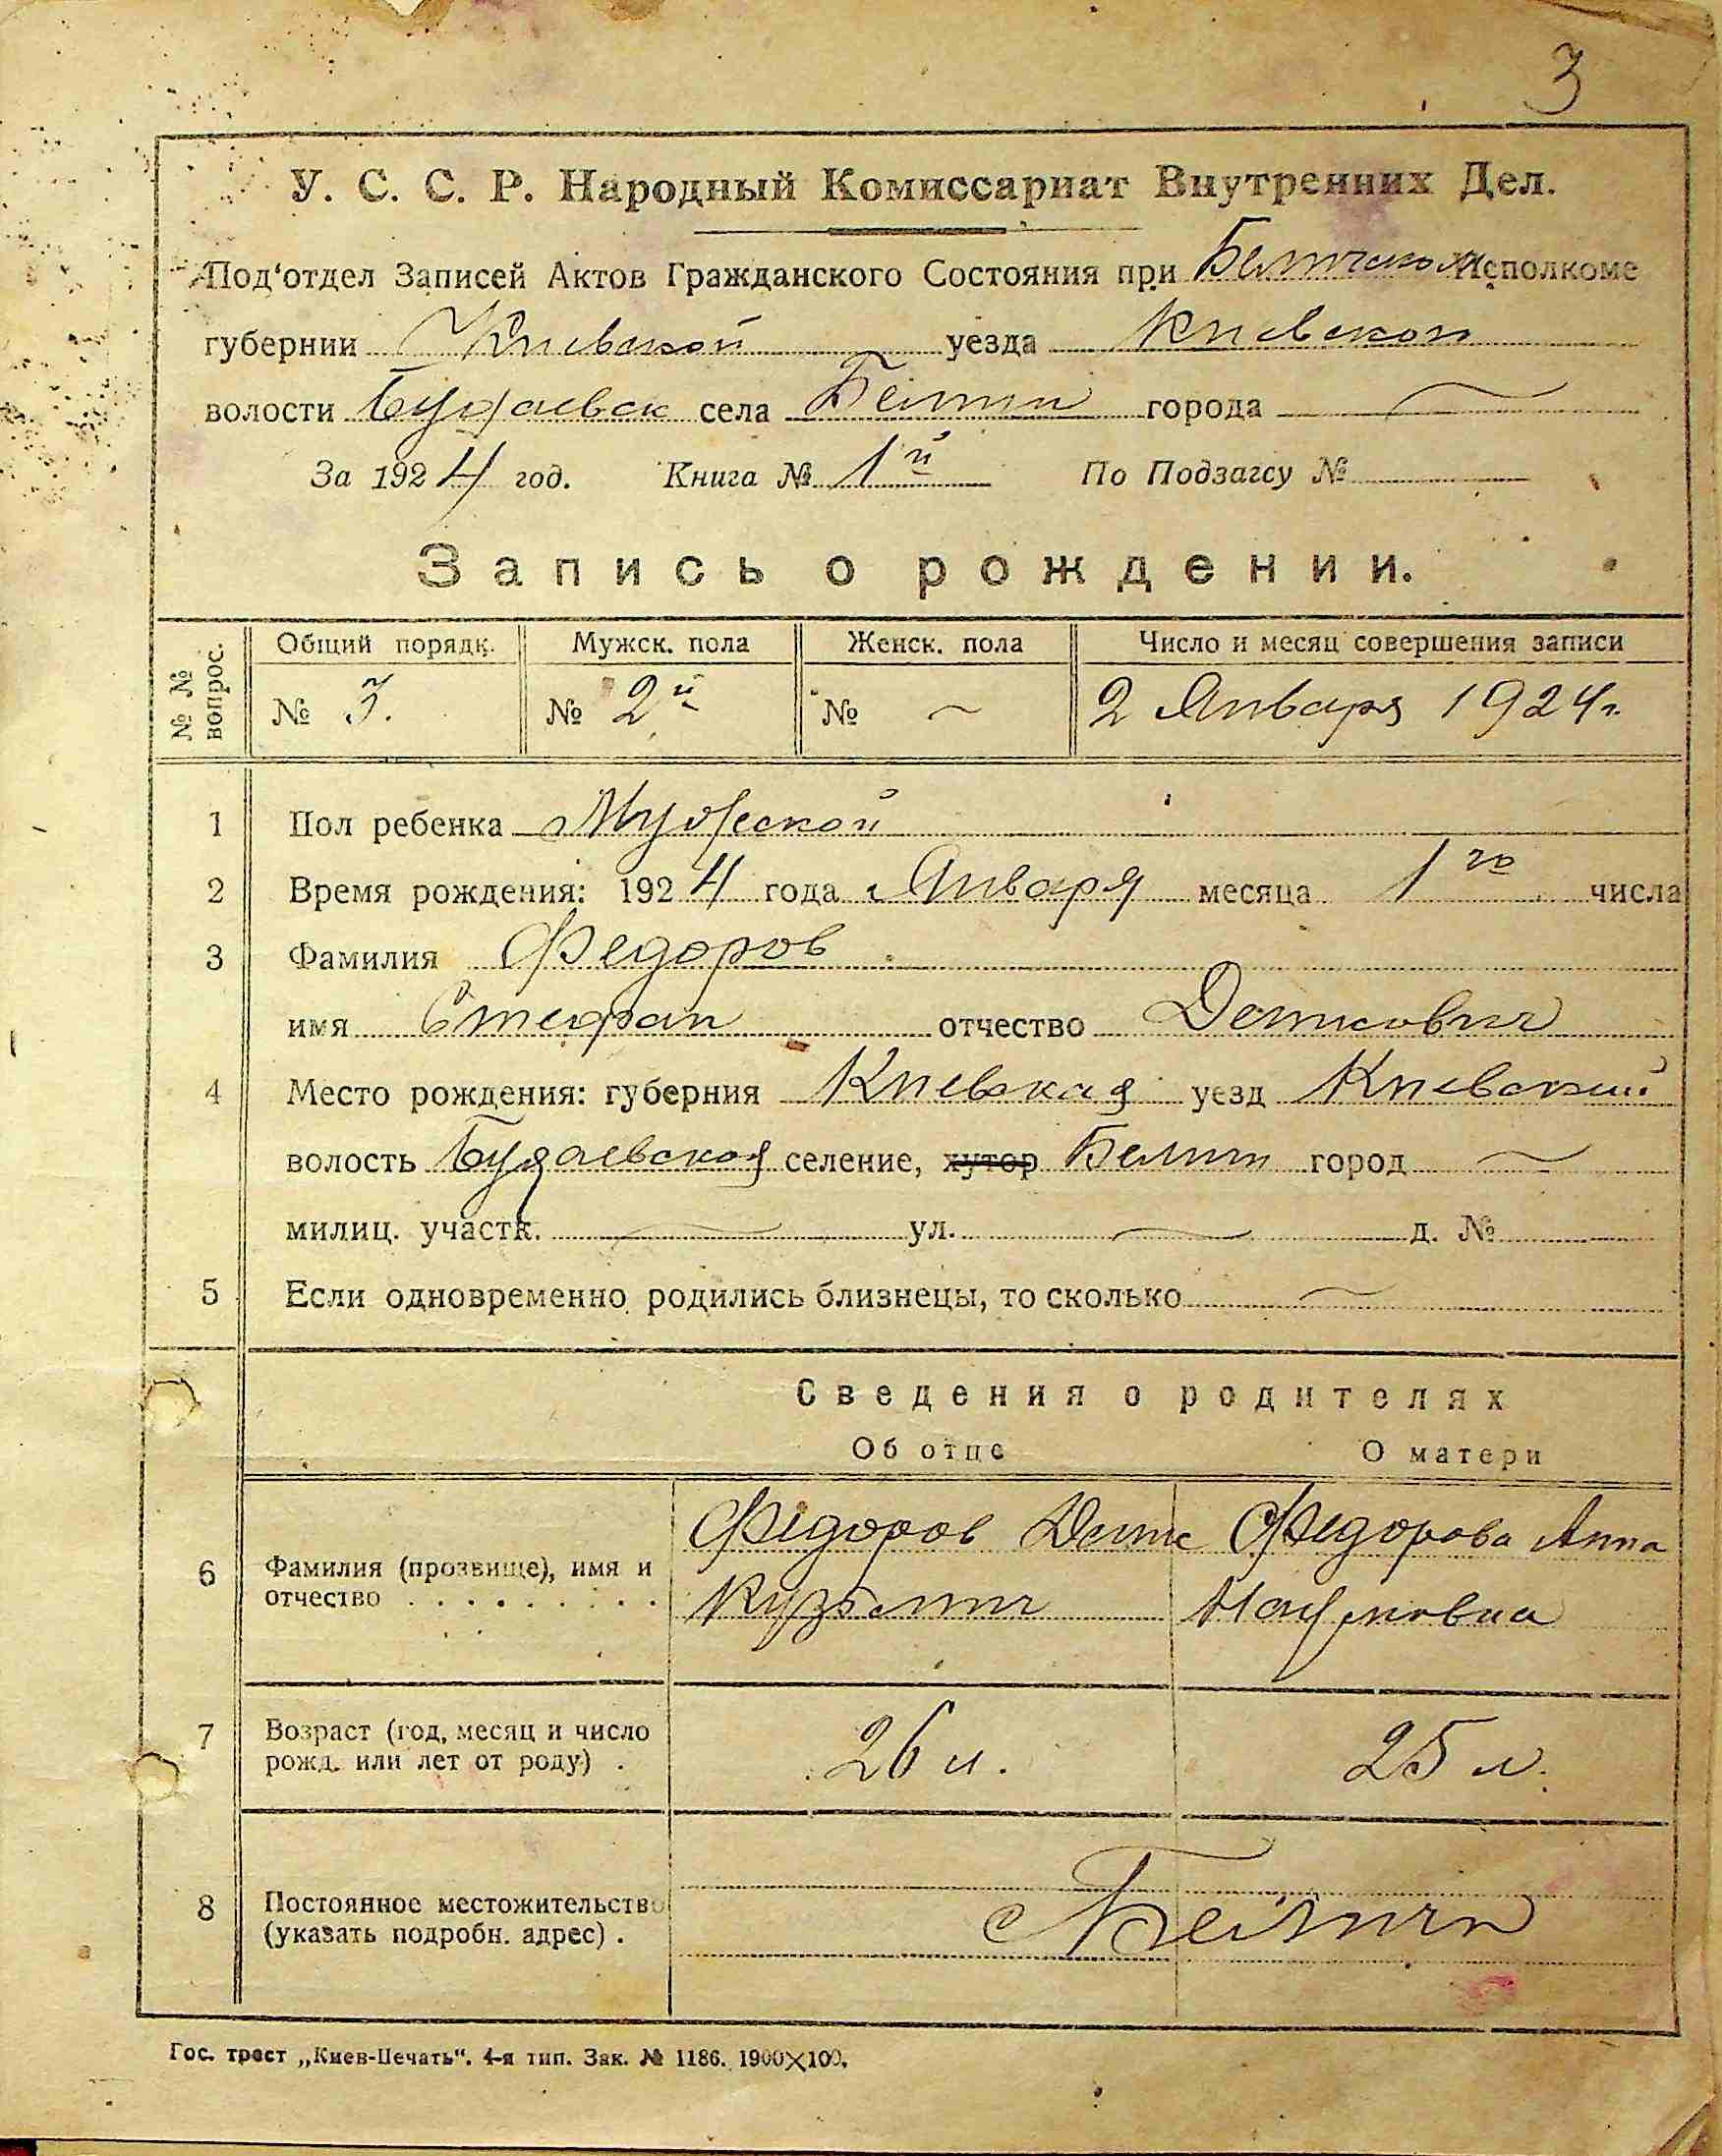 3
У. С. С. Р. Народный Комиссариат Внутренних Дел.
Под'отдел Записей Актов Гражданского Состояния при Беличском Исполкоме
губернии Киевской уезда Киевском
волости Будаевск села Беличи города
За 1924 год. Книга № 1й По Подзагсу №
Запись о рождении.
№ № вопрос. Общий порядк. Мужск. пола Женск. пола Число и месяц совершения записи
№ 3. № 2й № 2 Января 1924 г.
1 Пол ребенка Мужеской
2 Время рождения: 1924 года Января месяца 1го числа
3 Фамилия Федоров
имя Стефан отчество Денисович
4 Место рождения: губерния Киевская уезд Киевский
волость Будаевская селение, хутор Беличи город
милиц. участк. ул. д. №
5 Если одновременно родились близнецы, то сколько
Сведения о родителях
Об отце О матери
Федоров Денис Федорова Анна
6 Фамилия (прозвище), имя и
отчество . . . . . . . . . Кузьмич Наумовна
7 Возраст (год, месяц и число
рожд. или лет от роду) . 26 л. 25 л.
8 Постоянное местожительство
(указать подробн. адрес) . с Беличи
Гос. трест „Киев-Печать“. 4-я тип. Зак. № 1186. 1900×100.